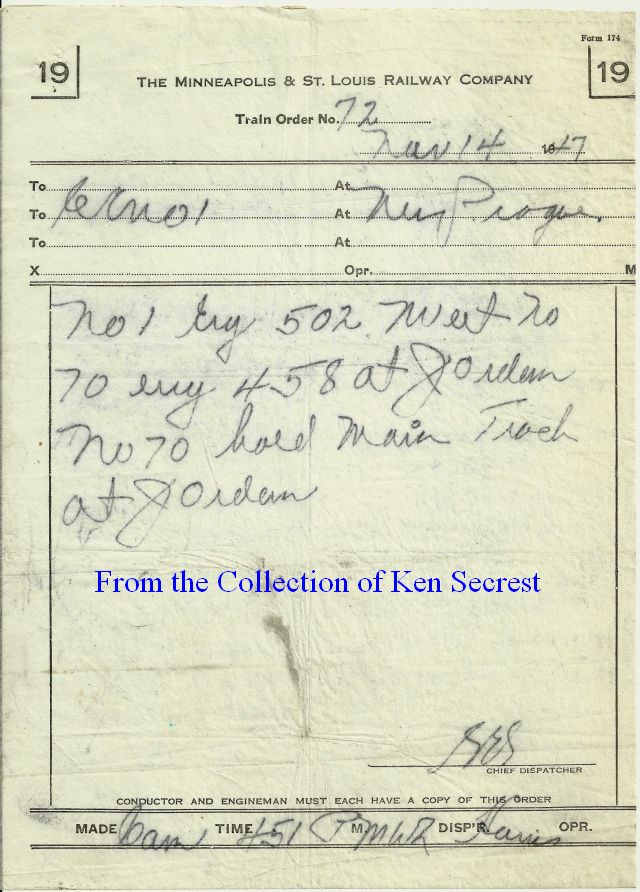 Form 174
19 19
THE MINNEAPOLIS & ST. LOUIS RAILWAY COMPANY
Train Order No. 72
Nov 14 1947
To At
To C&E No 1 At New Prague.
To At
X Opr. M
No 1 Eng 502 Meet No
70 eng 458 at Jordan
No 70 hold Main Track
at Jordan
From the Collection of Ken Secrest
CHIEF DISPATCHER
CONDUCTOR AND ENGINEMAN MUST EACH HAVE A COPY OF THIS ORDER
MADE Com TIME 451 P M DISP'R. OPR.